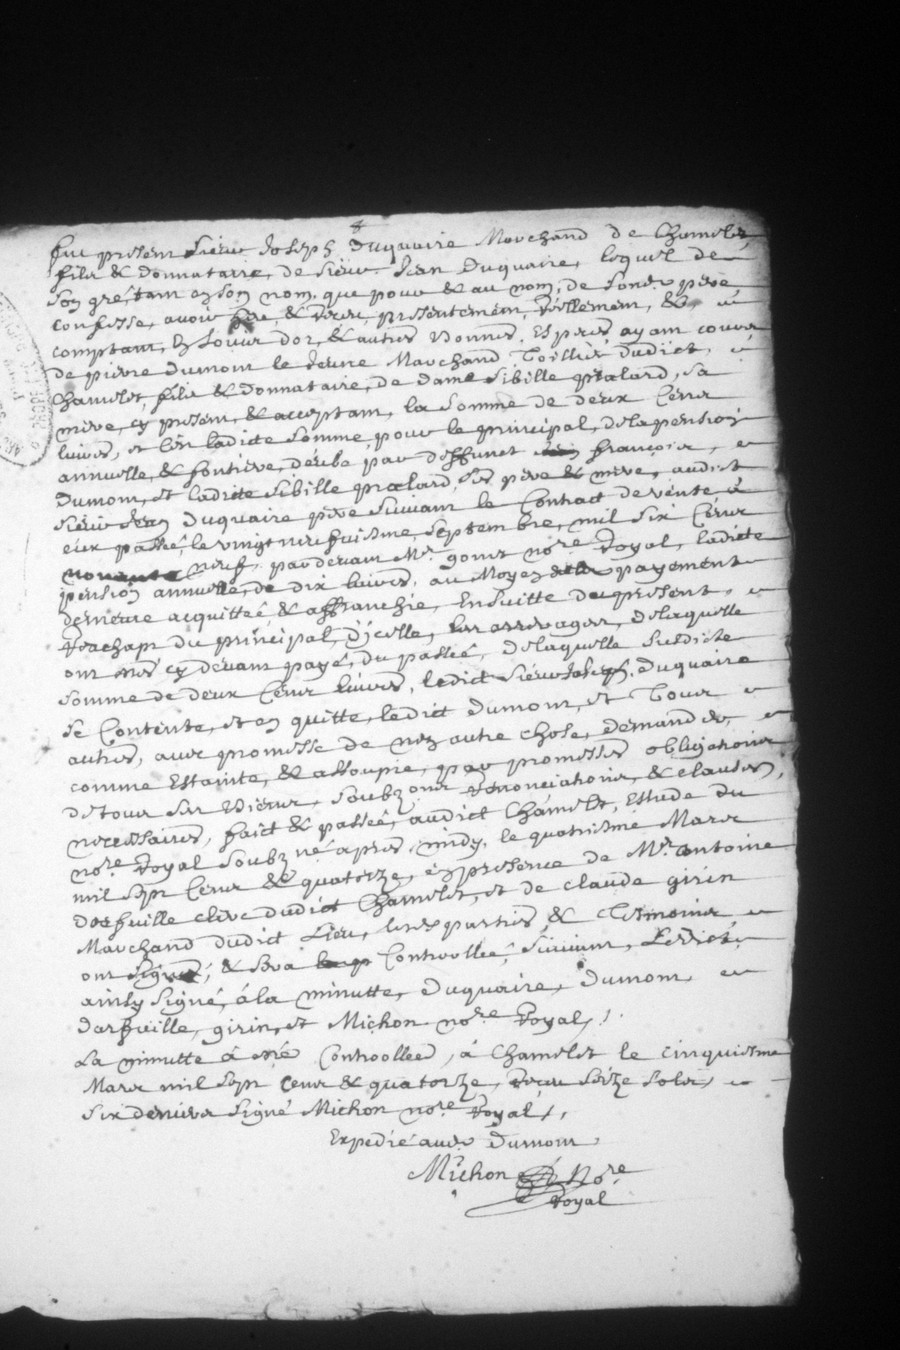 fut present Sieur Joseph Duquaire Marchand de Chamelet
filz & donnataire, de Sieur Jean Duquaire, lequel de
son gré, tant en son nom, que pour & au nom, de sond. père
confesse, avoir & receu, presentement, réellement, &
comptant, en Louis d'or, & autres bonnes, Espèces ayant cours
de pierre dumont le Jeune Marchand Toillier dudict,
Chamelet, filz & donnataire, de dame Sibille pralard, sa
mère, cy present, & acceptant, la somme de deux Cents
livres, et C'est ladicte somme, pour le principal, de la pension
annuelle, & fontière, deube par deffunct françois,
Dumont, et ladicte Sibille pralard, Ses père & mère, audict
Sieur Jean Duquaire père Suivant le Contract de vente à
eux passée, le vingt neufuiesme, Septembre, mil six Cents
nonante neuf, pardevant Me. gonet no.re Royal, ladicte
pension annuelle, de dix livres, au Moyen payement
demeure acquittée & affranchie, Ensuitte du present,
Reachapt du principal, d'jcelle, les arrerages, de laquelle
ont estés cy devant payé, du passée, de laquelle Susdicte
Somme de deux Cents livres, ledict Sieur Joseph, duquaire
se Contente, et en quitte, ledict dumont, et Tous
autres, avec promesse de n'en autre chose, demander,
comme Estainte, & assoupie, par promesses obligations
de tous ses Biens, Soubz ons Renonciations, & clauses,
necessaires, faict & passée, audict Chamelet, Estude du
no.re Royal Soubzné après, midy, le quatriesme Mars
mil sept Cents & quatorze, en presence de Me. antoine
dosfuille clerc dudict Chamelet, et de claude girin
Marchand dudict Lieu, lesd. parties, & Tesmoins,
ont Signé, & Sera Controollée, Suivant, L'edict,
ainsy Signé, à la minutte, duquaire, dumont,
darfuille, girin, et Michon no.re Royal,
La minutte à esté Controollée, à Chamelet le cinquiesme
Mars mil sept cents & quatorze, Receu Seize Sols,
six deniers Signé Michon no.re Royal,
Expedié aud. Dumont
Michon No.re
Royal